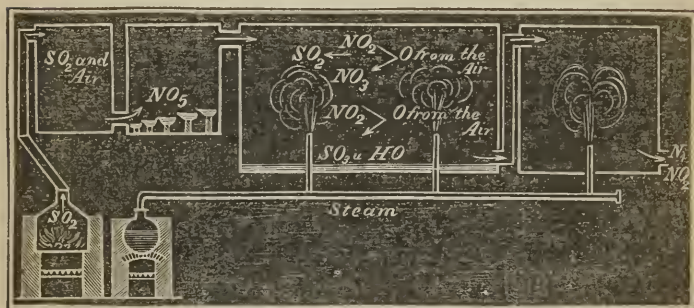 SO₂ and
Air
NO₅
NO₂
SO₂
O from the
Air
NO₃
NO₂
O from the
Air
SO₃ u HO
NO₂
Steam
SO₂